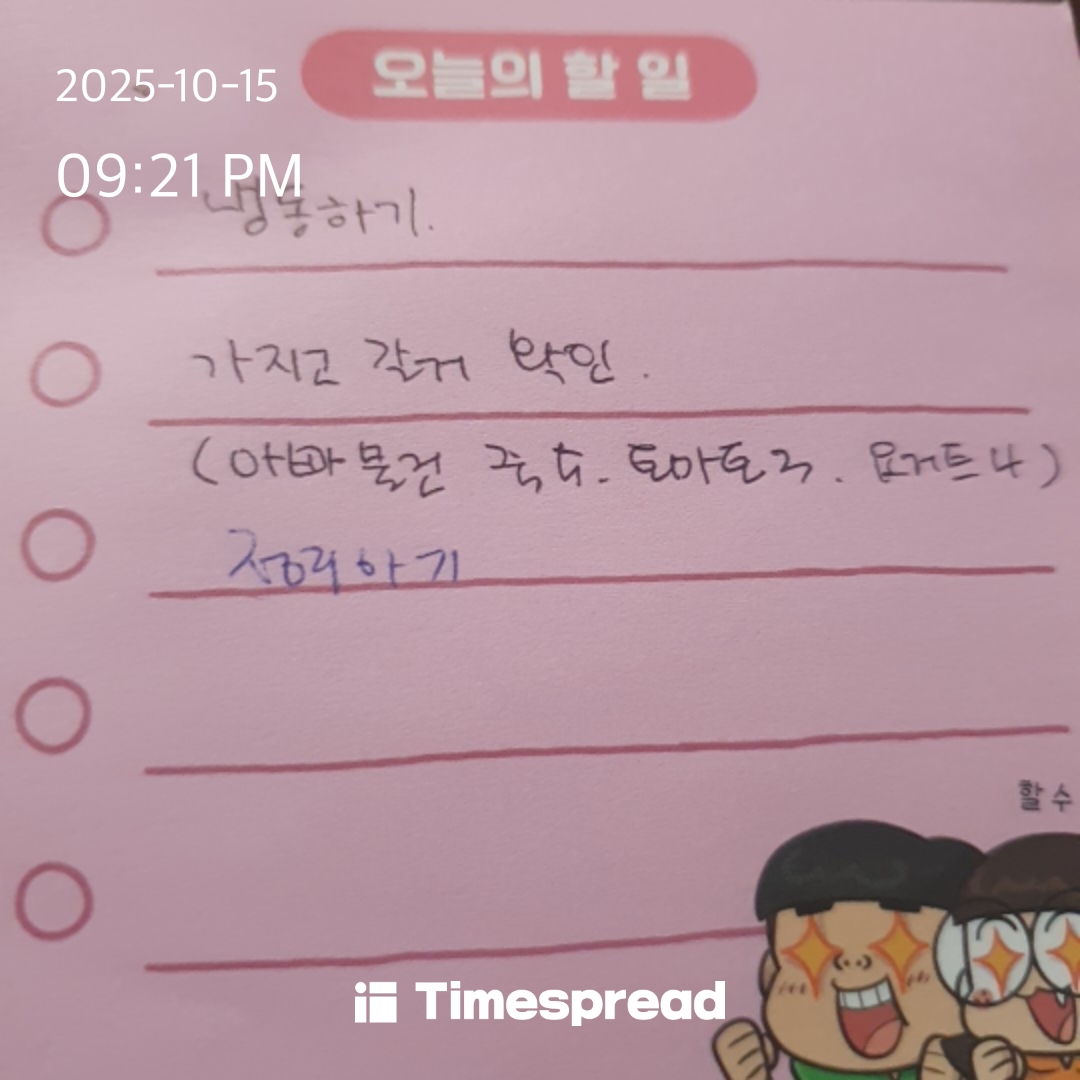 오늘의 할 일
2025-10-15
09:21 PM
냉동하기.
가지고 갈거 확인.
(아빠 물건 죽, 두. 토마토3. 요거트4)
정리하기
할 수
Timespread